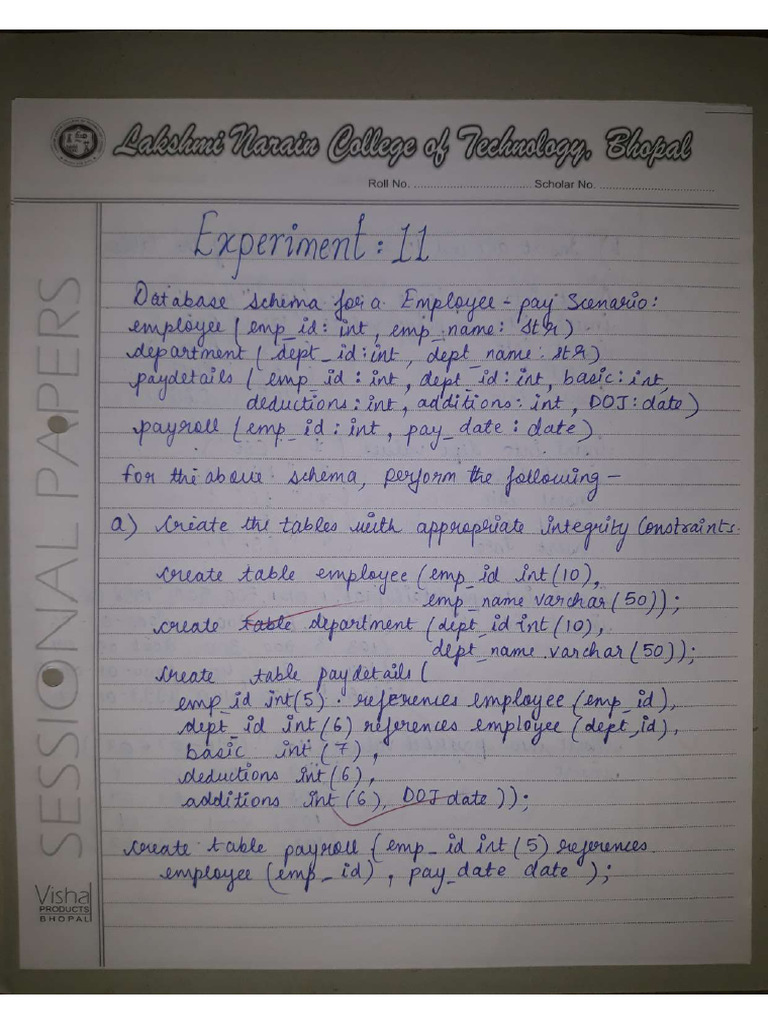 Lakshmi Narain College of Technology, Bhopal
Roll No. .................................. Scholar No. ..................................
SESSIONAL PAPERS
Experiment : 11
Database schema for a Employee - pay Scenario:
employee ( emp_id: int , emp_name: str )
department ( dept_id: int , dept_name: str )
paydetails ( emp_id : int , dept_id: int , basic: int,
deductions: int , additions: int , DOJ: date )
payroll ( emp_id : int , pay_date : date )
for the above schema, perform the following -
a) Create the tables with appropriate integrity Constraints.
create table employee ( emp_id int (10),
emp_name varchar (50));
create table department ( dept_id int (10),
dept_name varchar (50));
Create table paydetails (
emp_id int (5) . references employee (emp_id),
dept_id int (6) references employee (dept_id),
basic int (7) ,
deductions int (6),
additions int (6), DOJ date ));
create table payroll ( emp_id int (5) references
employee (emp_id) , pay_date date );
Vishal
PRODUCTS
BHOPAL